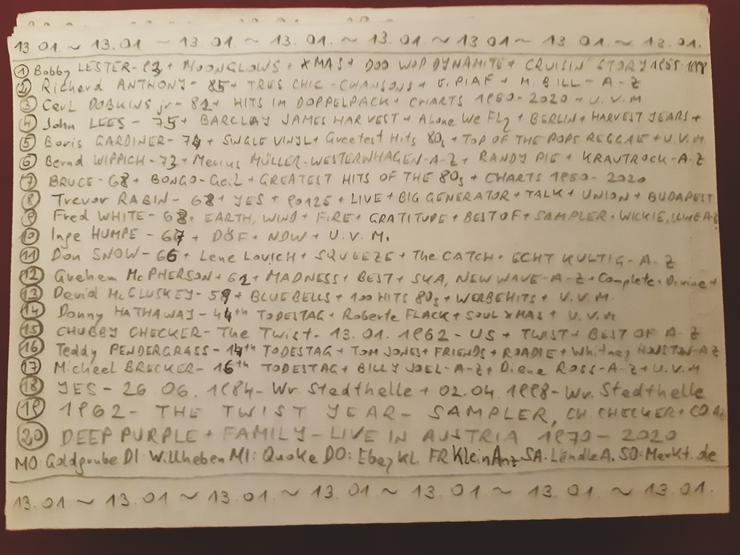 13.01. ~ 13.01 ~ 13.01 ~ 13.01. ~ 13.01. ~ 13.01. ~ 13.01.
1 Bobby LESTER - + MOONGLOWS + XMAS + DOO WOP DYNAMITE + CRUISIN' STORY 1955-
2 Richard ANTHONY - 85 + TRES CHIC - CHANSONS + E. PIAF + M. BILL - A-Z
3 Carl DOBKINS jr - 82 + HITS IM DOPPELPACK + CHARTS 1950-2020 + U.V.M
4 John LEES - 75 + BARCLAY JAMES HARVEST + Alone We Fly + BERLIN + HARVEST YEARS +
5 Boris GARDINER - 74 + SINGLE VINYL + Greatest Hits 80s + TOP OF THE POPS REGGAE + U.V.M
6 Bernd WIPPICH - 73 + Marius MÜLLER-WESTERNHAGEN - A-Z + RANDY PIE + KRAUTROCK - A-Z
7 BRUCE - 68 + BONGO - + GREATEST HITS OF THE 80s + CHARTS 1950-2020
8 Trevor RABIN - 68 + YES + 90125 + LIVE + BIG GENERATOR + TALK + UNION + BUDAPEST
9 Fred WHITE - + EARTH, WIND + FIRE + GRATITUDE + BEST OF + SAMPLER,
10 Inge HUMPE - 67 + DÖF + NDW + U.V.M.
11 Don SNOW - 66 + Lene Lovich + SQUEEZE + The CATCH + ECHT KULTIG - A-Z
12 Graham McPHERSON + 61 + MADNESS + BEST + SKA, NEW WAVE - A-Z + Complete Divine +
13 David McCLUSKEY - 59 + BLUEBELLS + 100 HITS 80s + WERBEHITS + U.V.M
14 Donny HATHAWAY - 44th TODESTAG + Roberta FLACK + SOUL XMAS + U.V.M
15 CHUBBY CHECKER - The Twist - 13.01.1962 - US + TWIST + BEST OF A-Z
16 Teddy PENDERGRASS - 14th TODESTAG + TOM JONES + FRIENDS + ROADIE + Whitney HOUSTON - A-Z
17 Michael BRECKER - 16th TODESTAG + BILLY JOEL - A-Z + Diana ROSS - A-Z + U.V.M
18 YES - 26.06.1984 - Wr. Stadthalle + 02.04.1998 - Wr. Stadthalle
19 1962 - THE TWIST YEAR - SAMPLER, CH. CHECKER + CO
20 DEEP PURPLE + FAMILY - LIVE IN AUSTRIA 1970 - 2020
MO: Goldgrube DI: Willhaben MI: Quoka DO: Ebay KL. FR Klein Anz SA: Ländle A. SO: Markt.de
13.01 ~ 13.01 ~ 13.01 ~ 13.01 ~ 13.01 ~ 13.01. ~ 13.01.